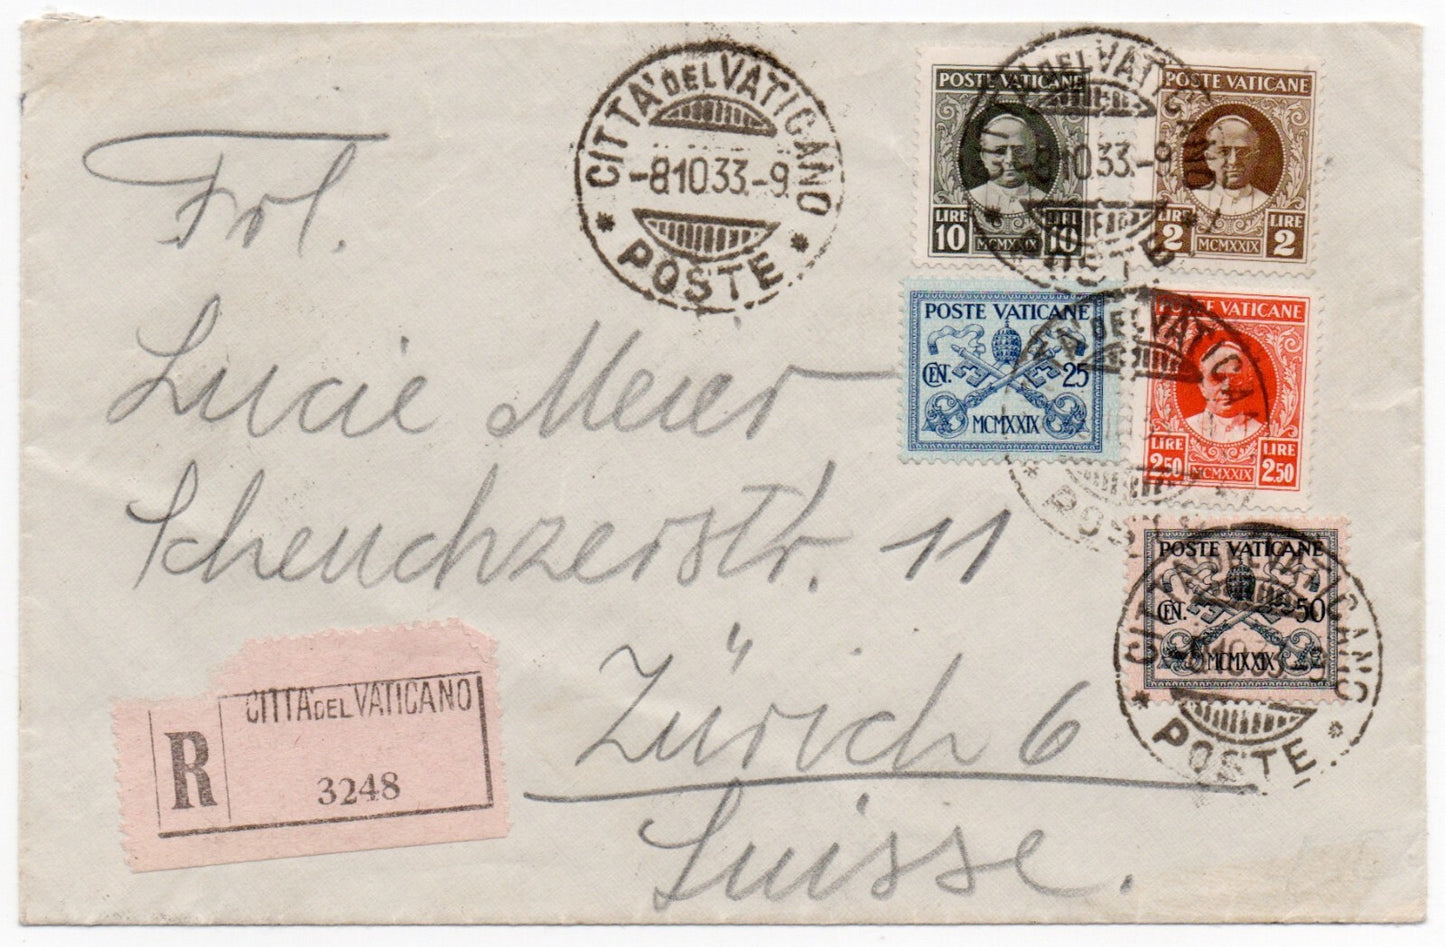 CITTA' DEL VATICANO
-8.10.33.-9
* POSTE *
POSTE VATICANE
LIRE 10
MCMXXIX
LIRE 10
POSTE VATICANE
LIRE 2
MCMXXIX
LIRE 2
DEL VATICANO
-8.10.33.-9
POSTE VATICANE
CEN. 25
MCMXXIX
POSTE VATICANE
LIRE 2.50
MCMXXIX
LIRE 2.50
DEL VATICANO
POSTE VATICANE
CEN. 50
MCMXXIX
CITTA' DEL VATICANO
-8.10.33.-9
* POSTE *
Frl.
Lucie Meier
Scheuchzerstr. 11
Zürich 6
Suisse.
R
CITTA' DEL VATICANO
3248